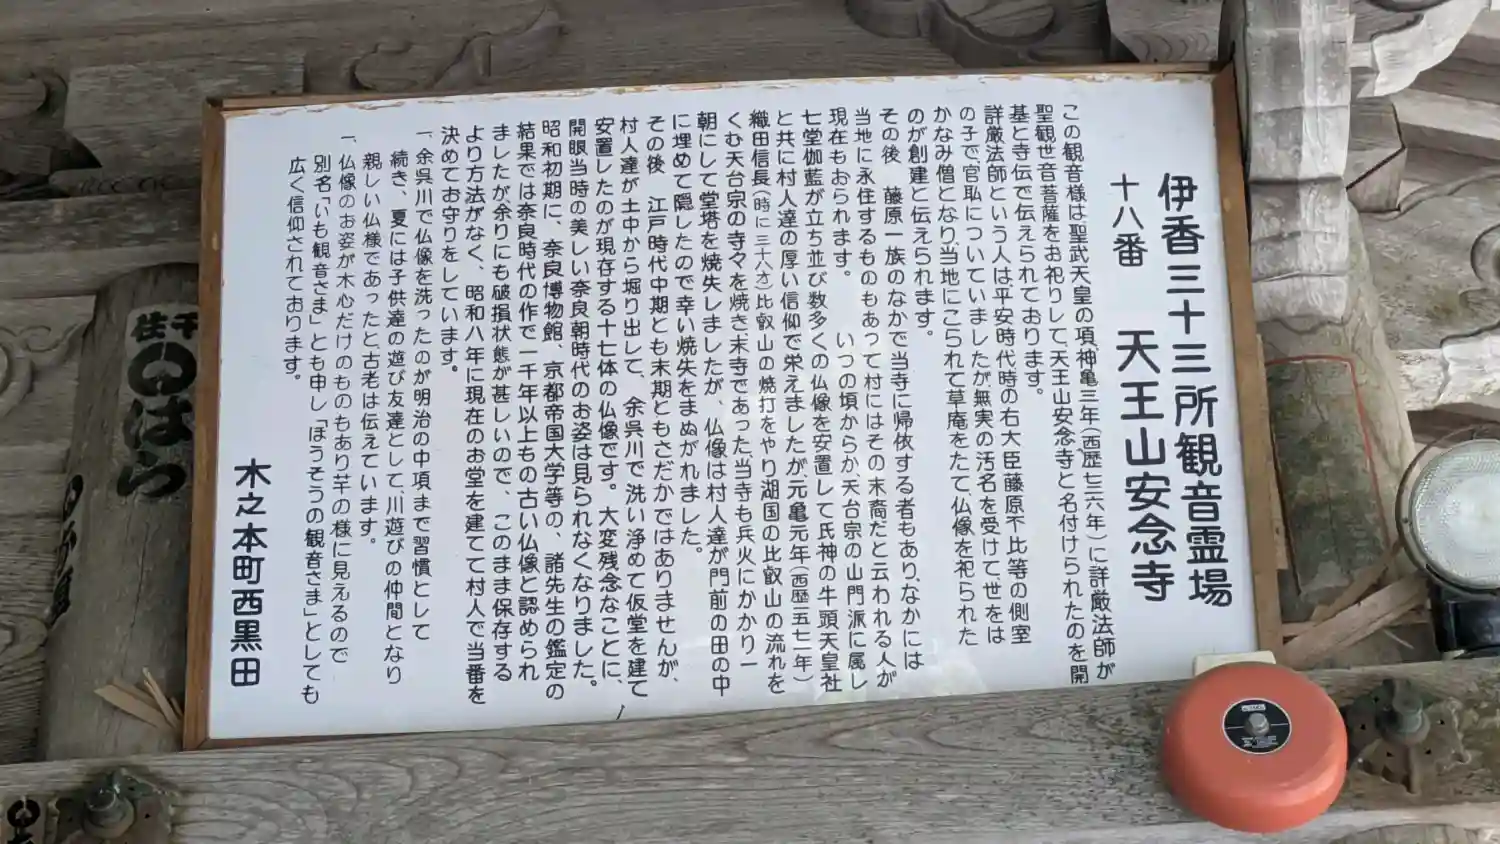 伊香三十三所観音霊場
十八番　天王山安念寺
この観音様は聖武天皇の項、神亀三年(西歴七二六年)に詳厳法師が
聖観世音菩薩をお祀りして天王山安念寺と名付けられたのを開
基と寺伝で伝えられております。
詳厳法師という人は平安時代時の右大臣藤原不比等の側室
の子で、官職についていましたが無実の汚名を受けて、世をは
かなみ僧となり、当地にこられて草庵をたて、仏像を祀られた
のが創建と伝えられます。
その後　藤原一族のなかで当寺に帰依する者もあり、なかには
当地に永住するものもあって村にはその末裔だと云われる人が
現在もおられます。　いつの頃からか天台宗の山門派に属し
七堂伽藍が立ち並び数多くの仏像を安置して氏神の牛頭天皇社
と共に村人達の厚い信仰で栄えましたが元亀元年(西歴一五七一年)
織田信長(時に三十八才)比叡山の焼打をやり湖国の比叡山の流れを
くむ天台宗の寺々を焼き、末寺であった当寺も兵火にかかり一
朝にして堂塔を焼失しましたが、仏像は村人達が門前の田の中
に埋めて隠したので幸い焼失をまぬがれました。
その後　江戸時代中期とも末期ともさだかではありませんが、
村人達が土中から堀り出して、余呉川で洗い浄めて仮堂を建て
安置したのが現存する十七体の仏像です。大変残念なことに、
開眼当時の美しい奈良朝時代のお姿は見られなくなりました。
昭和初期に、奈良博物館、京都帝国大学等の、諸先生の鑑定の
結果では奈良時代の作で一千年以上もの古い仏像と認められ
ましたが余りにも破損状態が甚しいので、このまま保存する
より方法がなく、昭和八年に現在のお堂を建てて村人で当番を
決めてお守りをしています。
一、余呉川で仏像を洗ったのが明治の中項まで習慣として
続き、夏には子供達の遊び友達として、川遊びの仲間となり
親しい仏様であったと古老は伝えています。
一、仏像のお姿が木心だけのものもあり芋の様に見えるので
別名「いも観音さま」とも申し「ほうそうの観音さま」としても
広く信仰されております。
木之本町西黒田